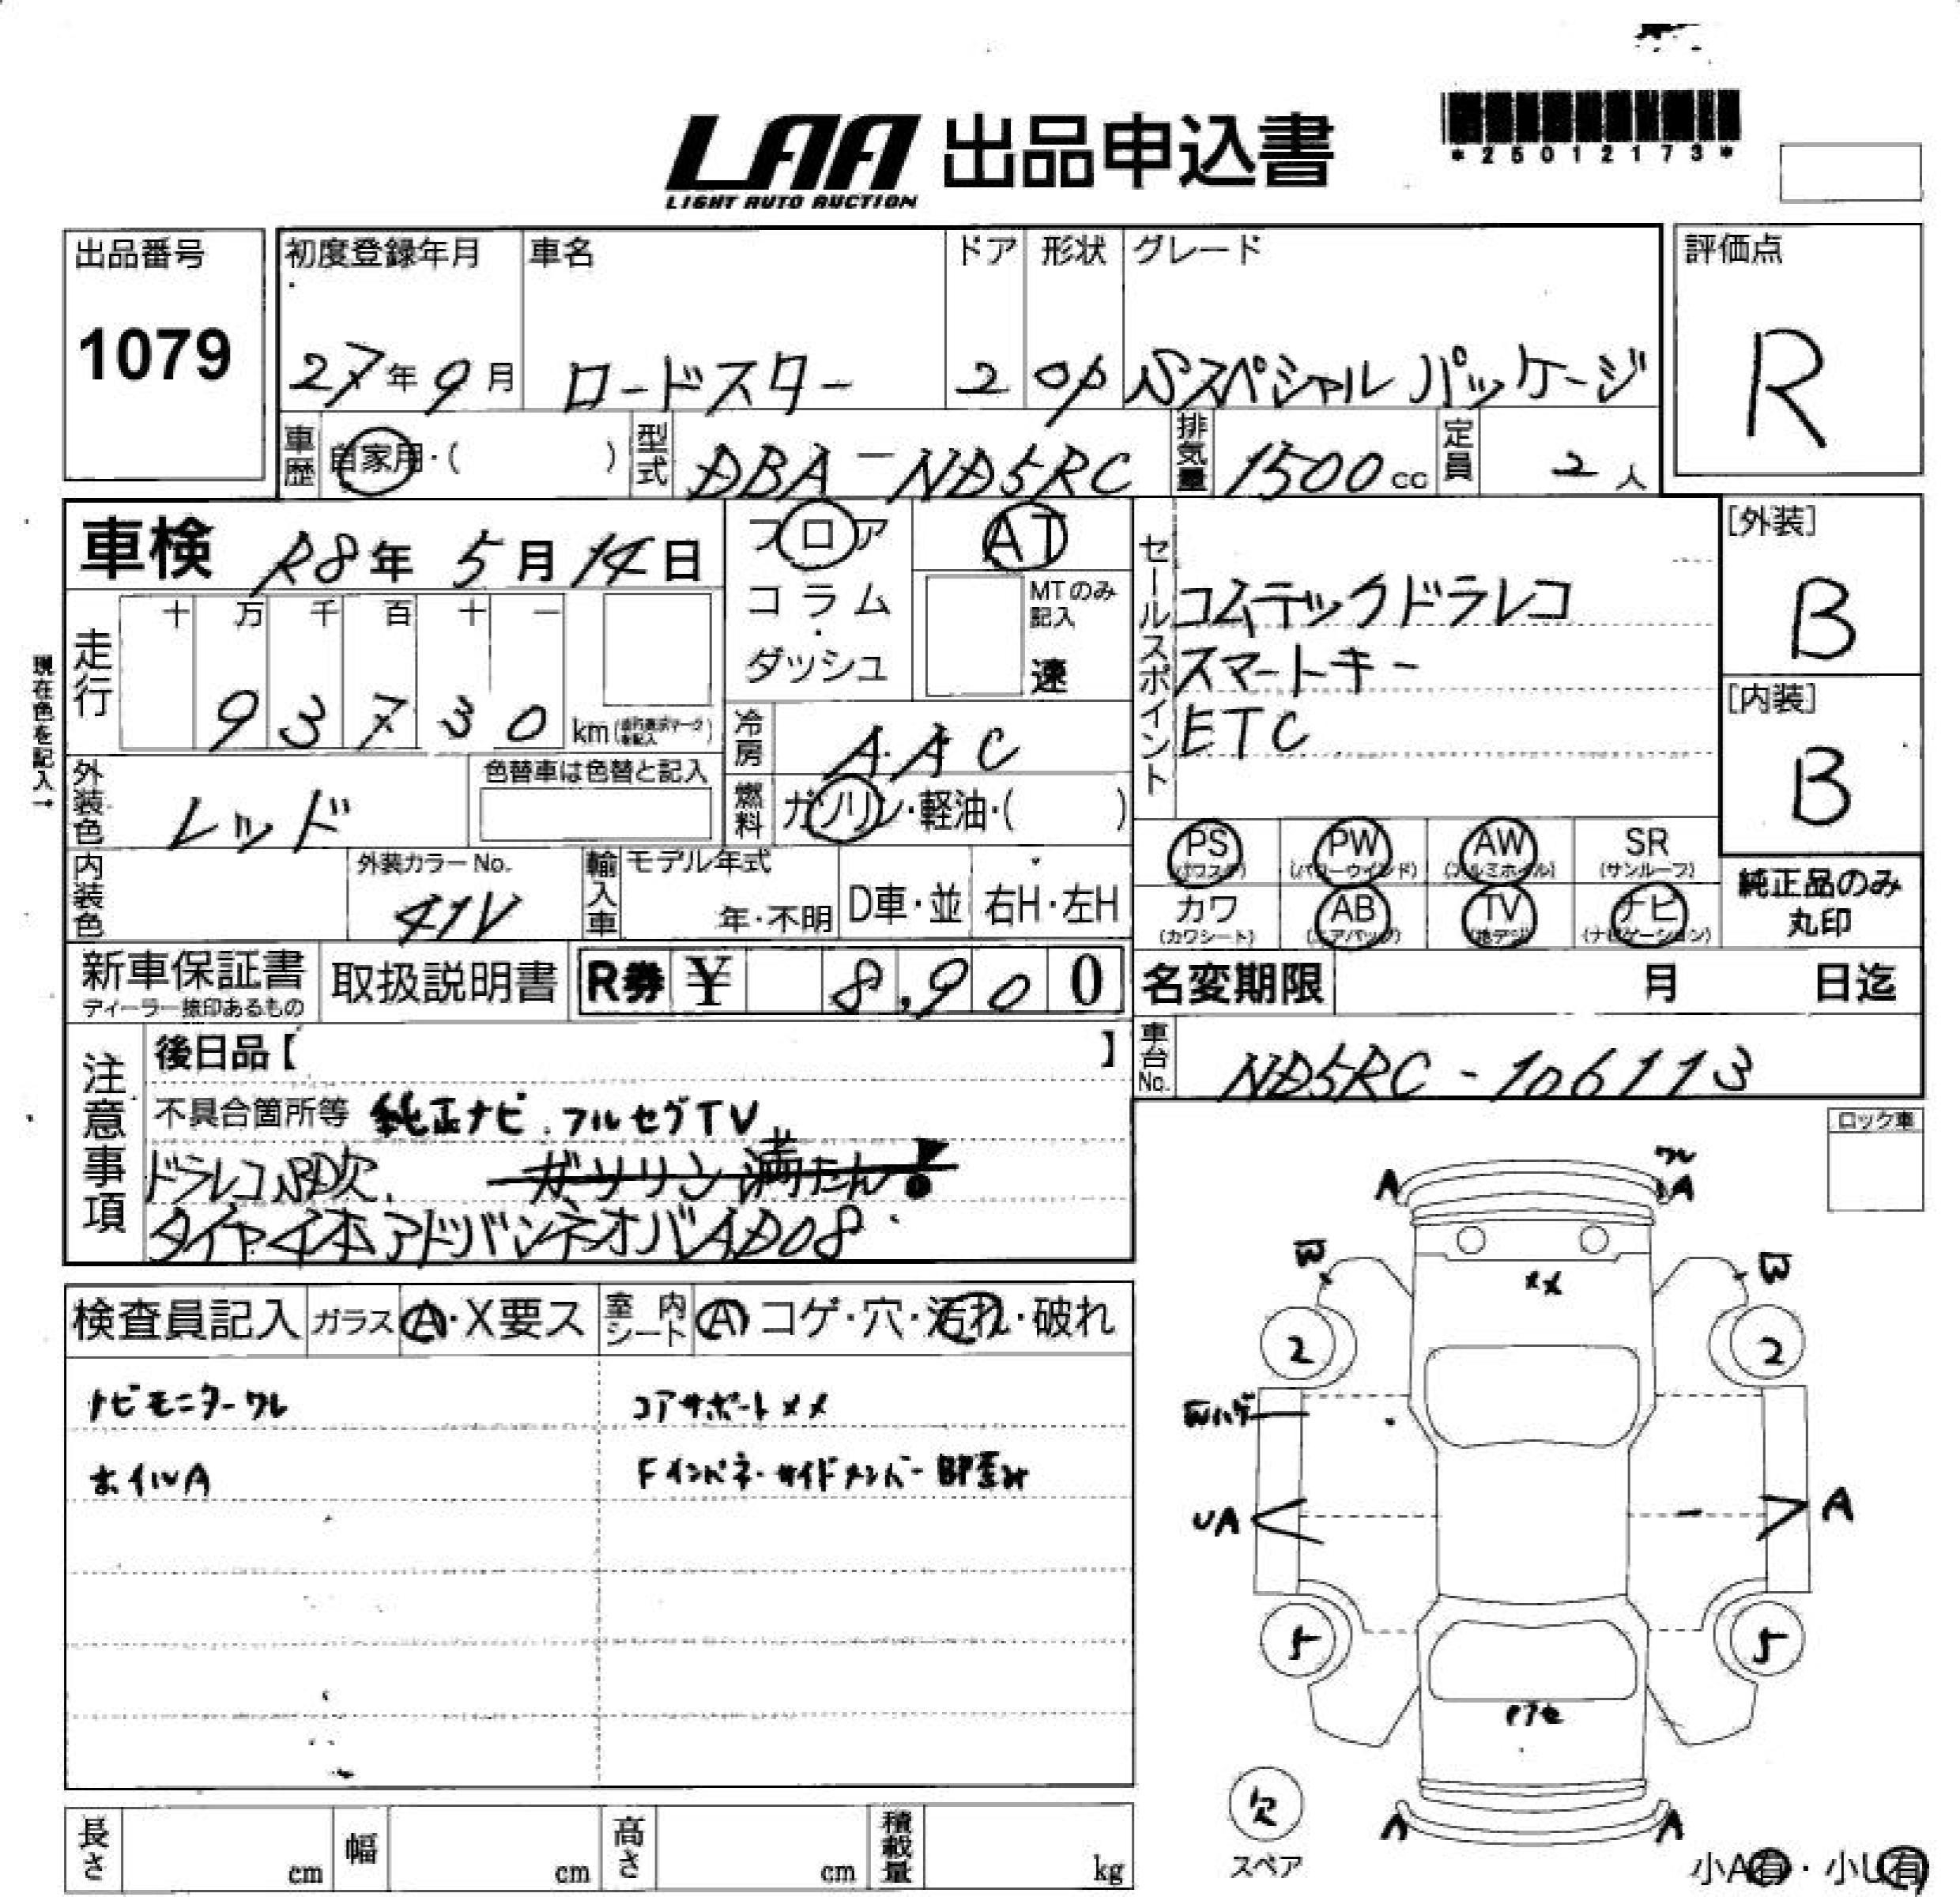 LAA 出品申込書
LIGHT AUTO AUCTION
*25012173*
出品番号
1079
初度登録年月
27年9月
車名
ロードスター
ドア
2
形状
OP
グレード
Sスペシャルパッケージ
評価点
R
車歴
自家用・( )
型式
DBA-ND5RC
排気量
1500cc
定員
2人
車検 R8年5月14日
フロア
コラム
・
ダッシュ
AT
MTのみ
記入
速
セールスポイント
コムテックドラレコ
スマートキー
ETC
[外装]
B
[内装]
B
現在色を記入→
走行
十 万 千 百 十 一
9 3 7 3 0 km
冷房
AAC
外装色
レッド
色替車は色替と記入
燃料
ガソリン・軽油・( )
PS
(パワステ)
PW
(パワーウインド)
AW
(アルミホイル)
SR
(サンルーフ)
カワ
(カワシート)
AB
(エアバッグ)
TV
(地デジ)
ナビ
(ナビゲーション)
純正品のみ
丸印
内装色
外装カラーNo.
41V
輸入車
モデル年式
年・不明
D車・並
右H・左H
新車保証書
ディーラー捺印あるもの
取扱説明書
R券 ¥ 8,900
名変期限 月 日迄
車台No.
ND5RC-106113
注意事項
後日品【 】
不具合箇所等 純正ナビ.フルセグTV
ドラレコSD欠. ガソリン満たん!
タイヤ4本アドバンネオバAD08
ロック車
検査員記入
ガラス A・X要ス
室内シート A コゲ・穴・汚れ・破れ
ナビモニターワレ
コアサポートメメ
ホイルA
Fインパネ・サイドメンバー部歪み
A
ワレ
A
W
W
メメ
2
2
Wハゲ
UA
A
5
5
欠
スペア
A
A
小A有・小U有
長さ cm
幅 cm
高さ cm
積載量 kg